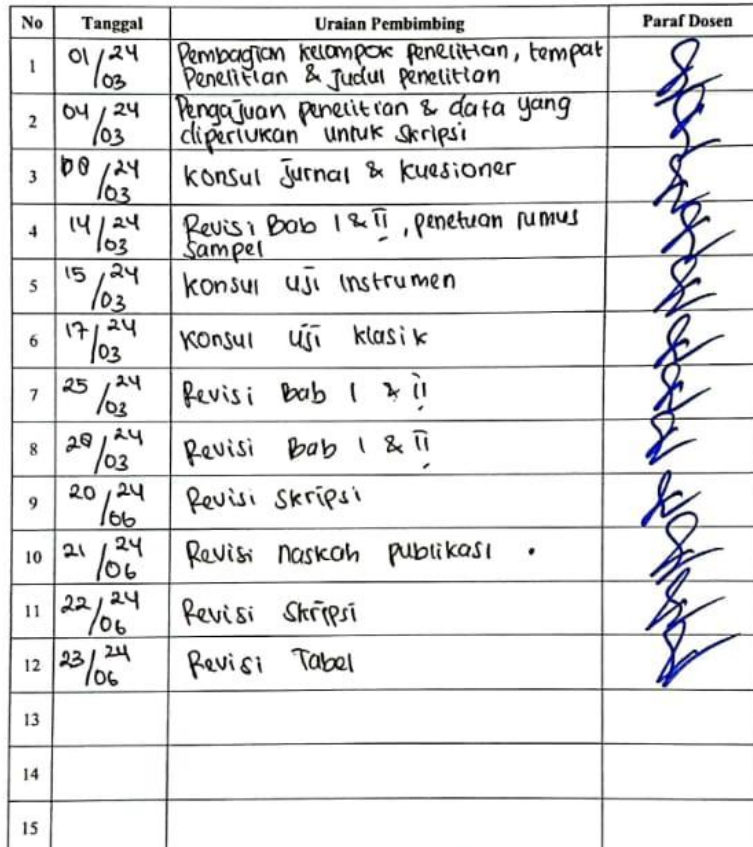 No Tanggal Uraian Pembimbing Paraf Dosen
1 01/03 24 Pembagian kelompok penelitian, tempat
Penelitian & Judul penelitian
2 04/03 24 Pengajuan penelitian & data yang
diperlukan untuk skripsi
3 08/03 24 Konsul Jurnal & kuesioner
4 14/03 24 Revisi Bab I & II, penetuan rumus
Sampel
5 15/03 24 Konsul uji instrumen
6 17/03 24 Konsul uji klasik
7 25/03 24 Revisi Bab I & II
8 28/03 24 Revisi Bab I & II
9 20/06 24 Revisi Skripsi
10 21/06 24 Revisi naskah publikasi .
11 22/06 24 Revisi Skripsi
12 23/06 24 Revisi Tabel
13
14
15